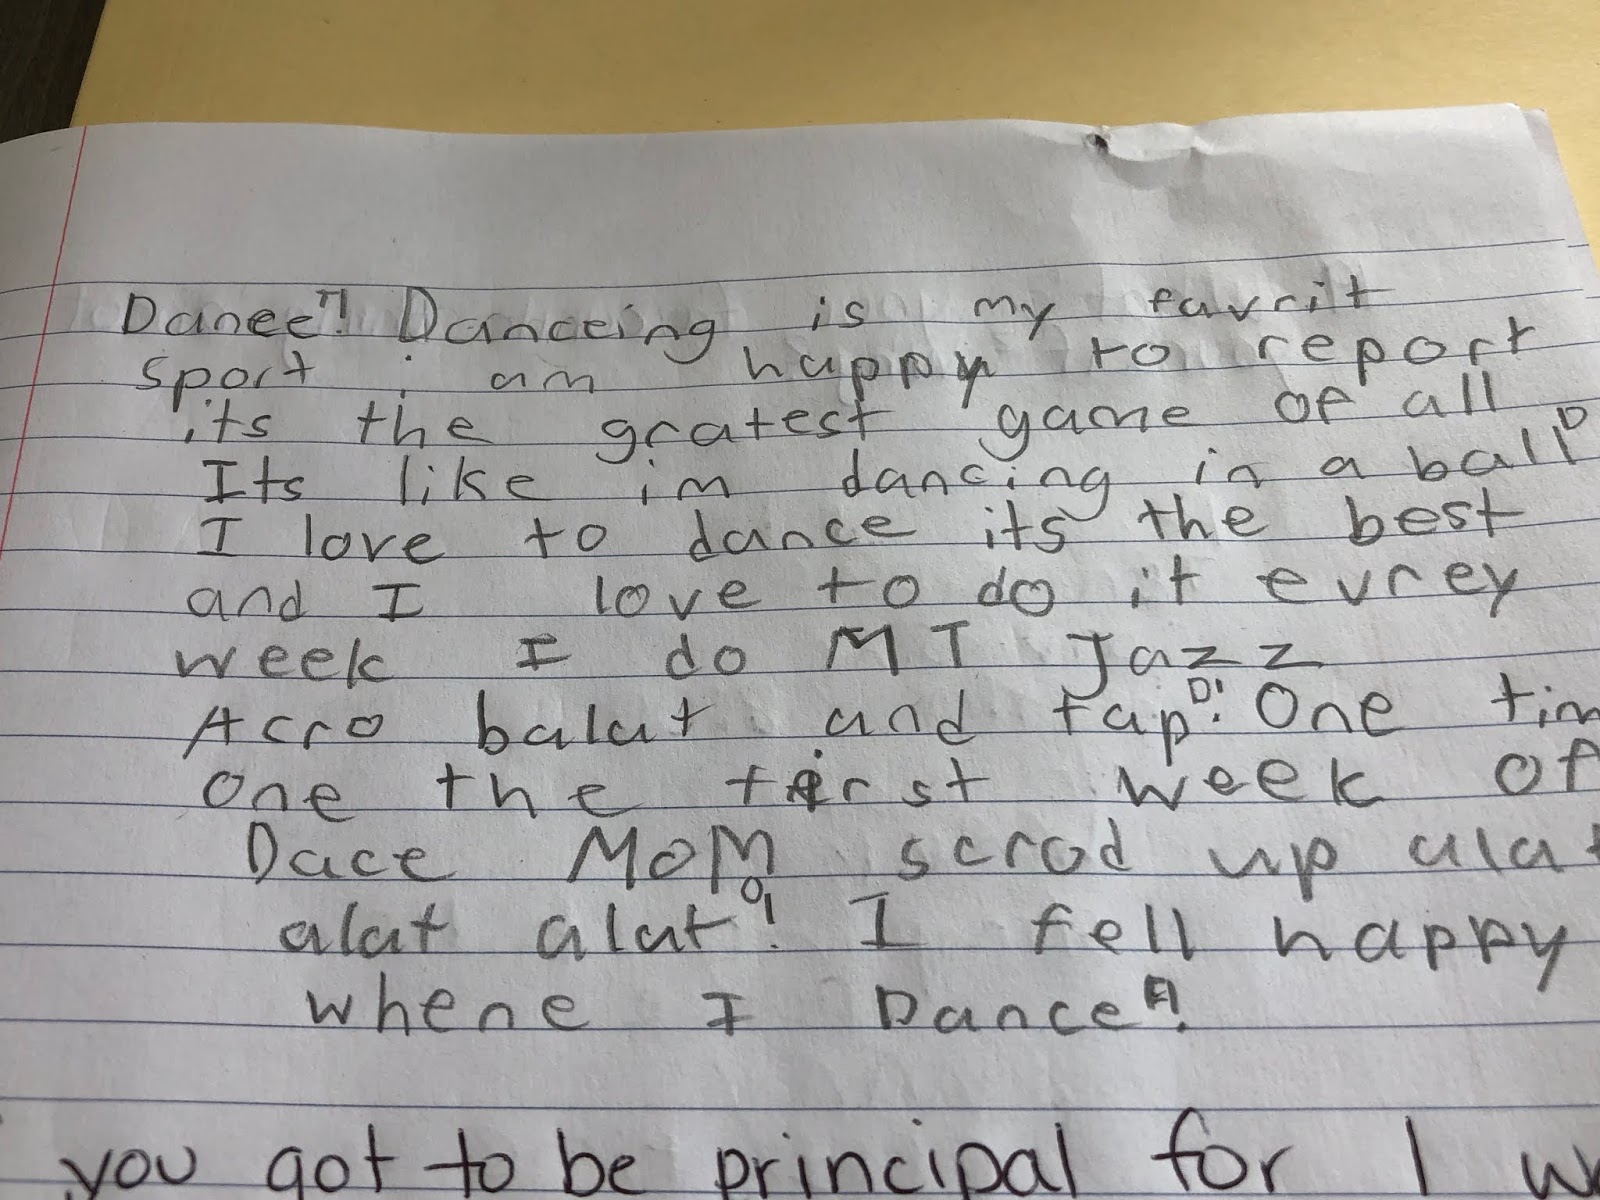 Dance! Danceing is my favrit
sport i am happy to report
its the gratest game of all
Its like im dancing in a ball
I love to dance its the best
and I love to do it evrey
week I do MT Jazz
Acro balat and tap! One tim
one the first week of
Dace MoM scrod up alat
alat alat! I fell happy
whene I Dance!
you got to be principal for 1 w